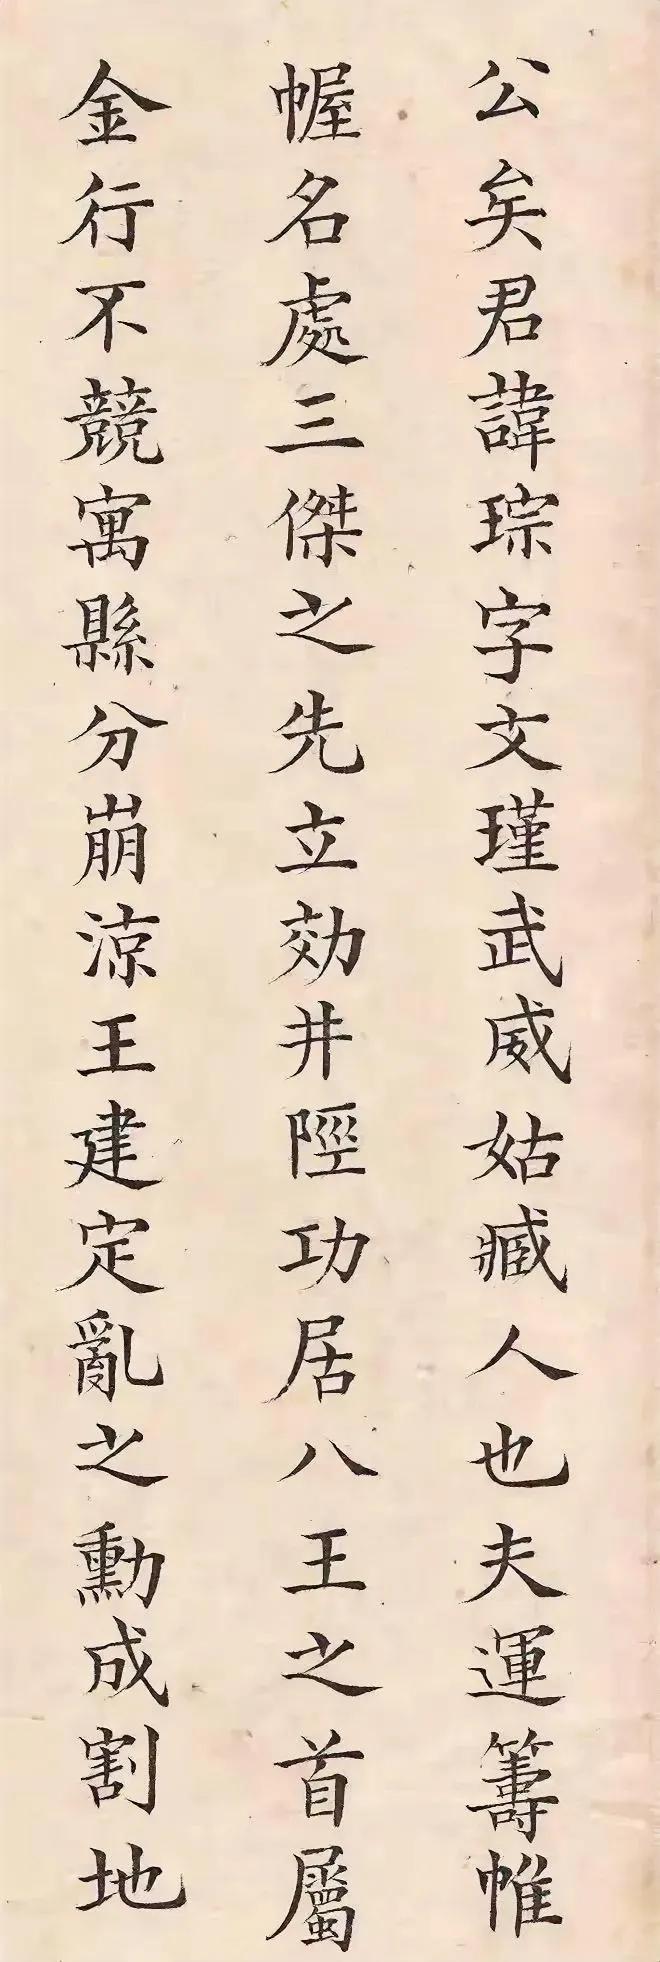 公矣君諱琮字文瑾武威姑臧人也夫運籌帷
幄名處三傑之先立効井陘功居八王之首屬
金行不競寓縣分崩涼王建定亂之勳成割地